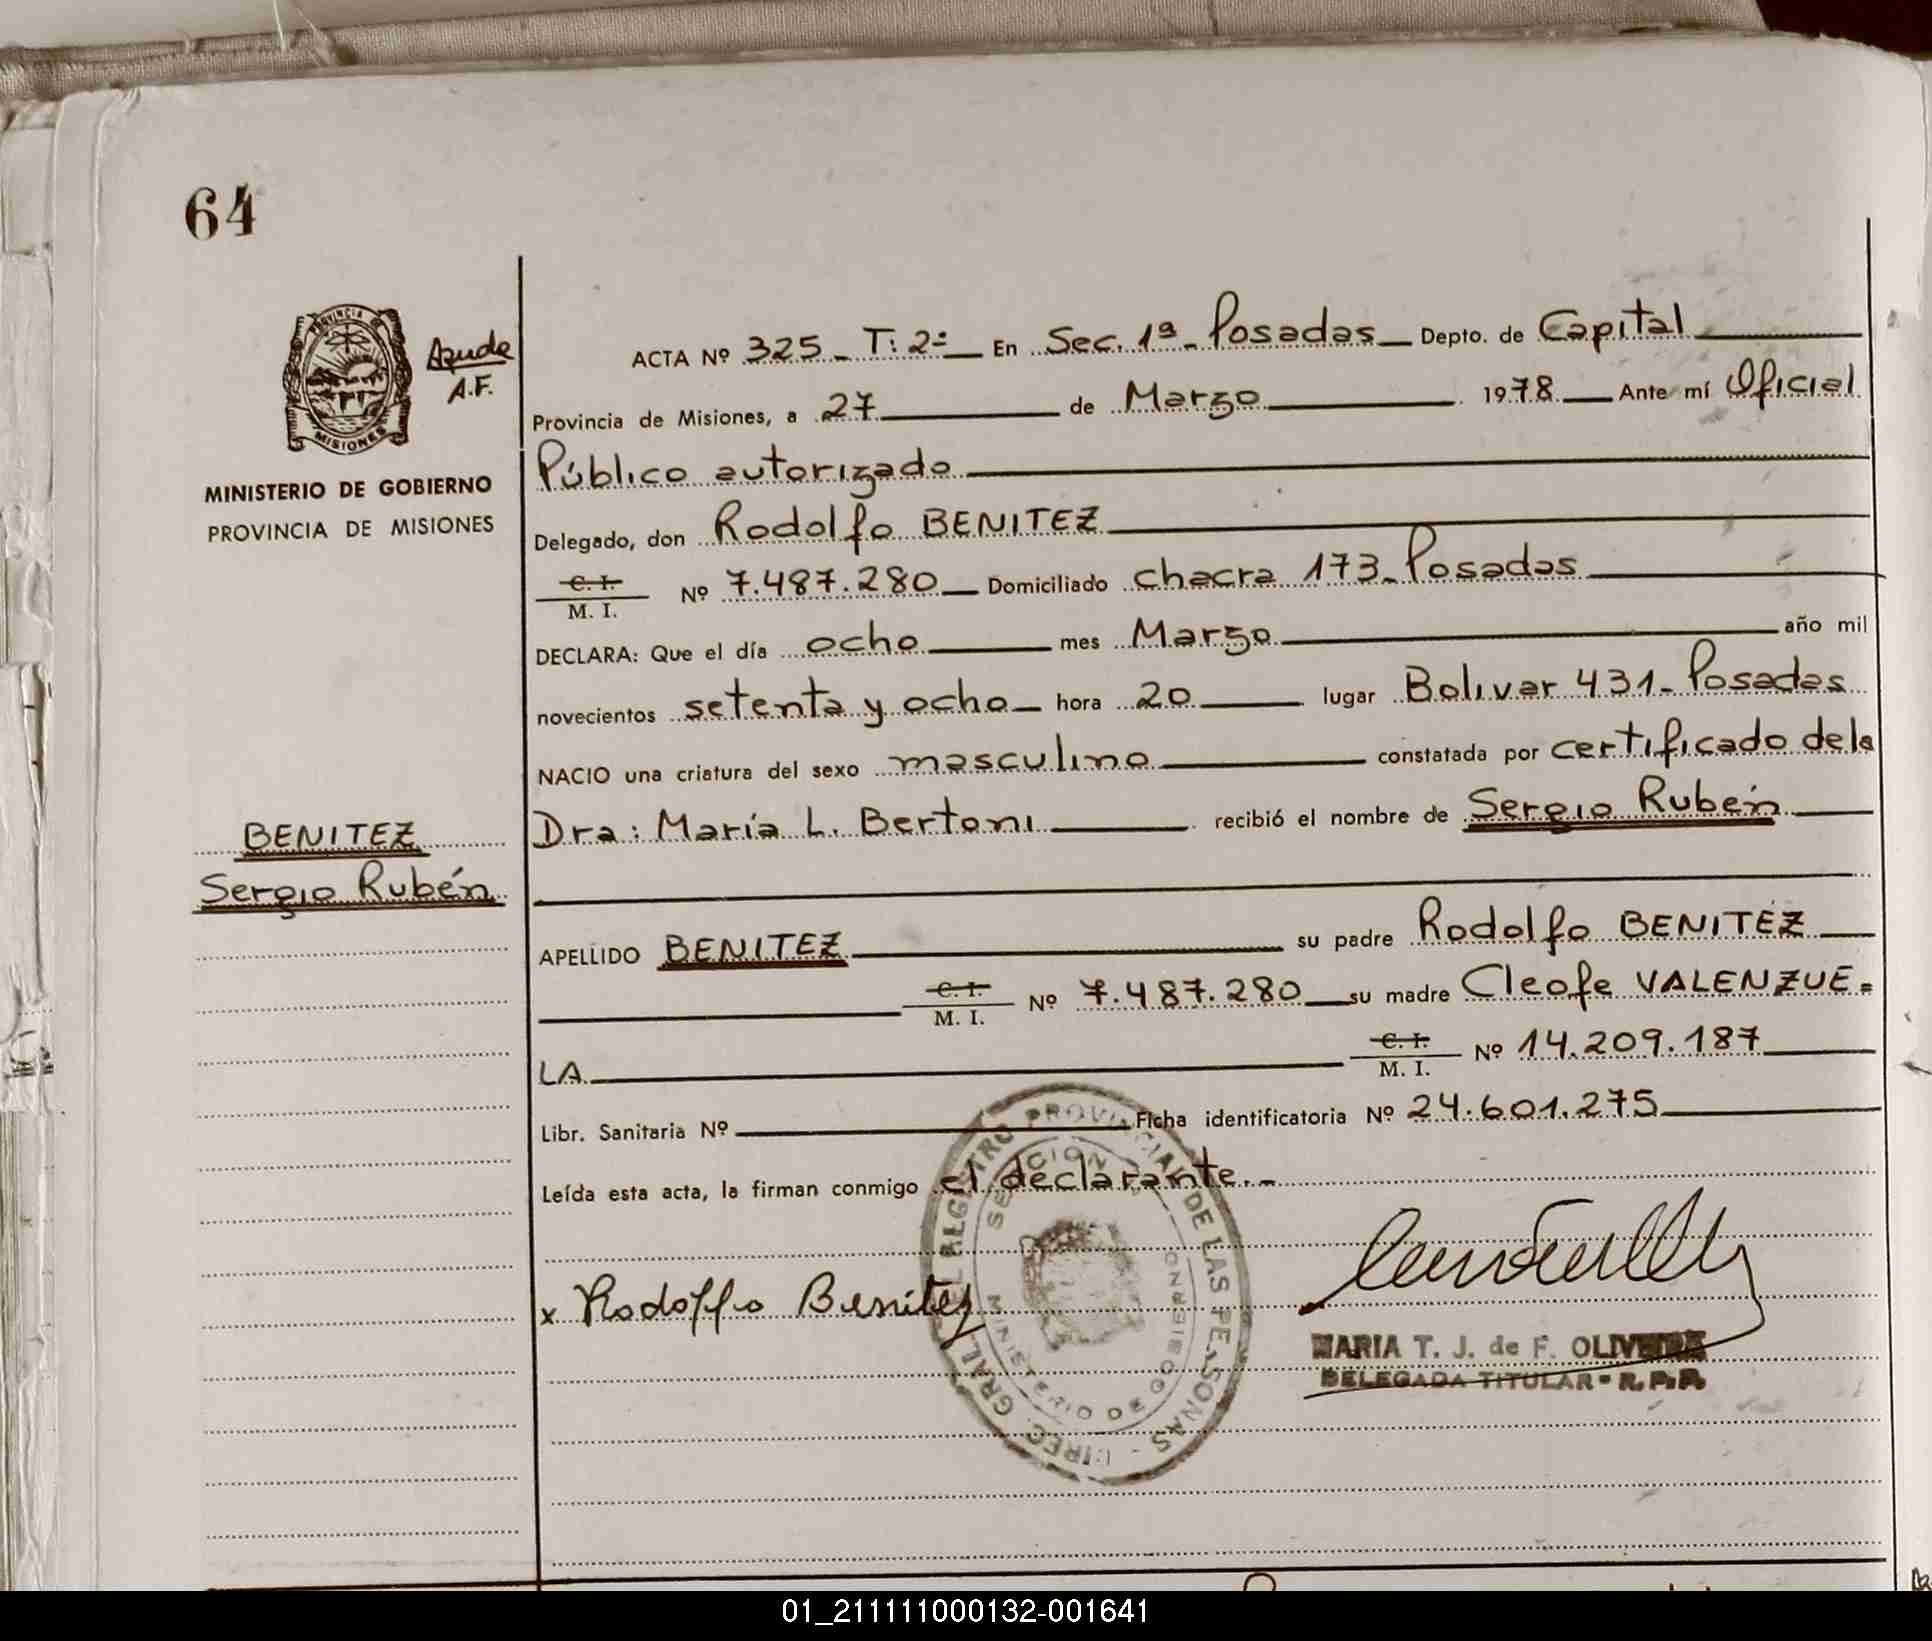 64
PROVINCIA DE
MISIONES
A.F.
MINISTERIO DE GOBIERNO
PROVINCIA DE MISIONES
BENITEZ
Sergio Rubén
ACTA Nº 325 _ T: 2º _ En Sec. 1ª _ Posadas _ Depto. de Capital
Provincia de Misiones, a 27 de Marzo 1978 Ante mí Oficial
Público autorizado
Delegado, don Rodolfo BENITEZ
C. I.
M. I. Nº 7.487.280 Domiciliado chacra 173 _ Posadas
DECLARA: Que el día ocho mes Marzo año mil
novecientos setenta y ocho hora 20 lugar Bolivar 431 _ Posadas
NACIO una criatura del sexo masculino constatada por certificado de la
Dra: María L. Bertoni recibió el nombre de Sergio Rubén
APELLIDO BENITEZ su padre Rodolfo BENITEZ
C. I.
M. I. Nº 7.487.280 su madre Cleofe VALENZUE=
LA C. I.
M. I. Nº 14.209.187
Libr. Sanitaria Nº Ficha identificatoria Nº 24.601.275
Leída esta acta, la firman conmigo el declarante._
x Rodolfo Benitez
DIREC. GRAL. REGISTRO PROVINCIAL DE LAS PERSONAS
MINISTERIO DE GOBIERNO
MARIA T. J. de F. OLIVEIRA
DELEGADA TITULAR - R.P.P.
01_211111000132-001641